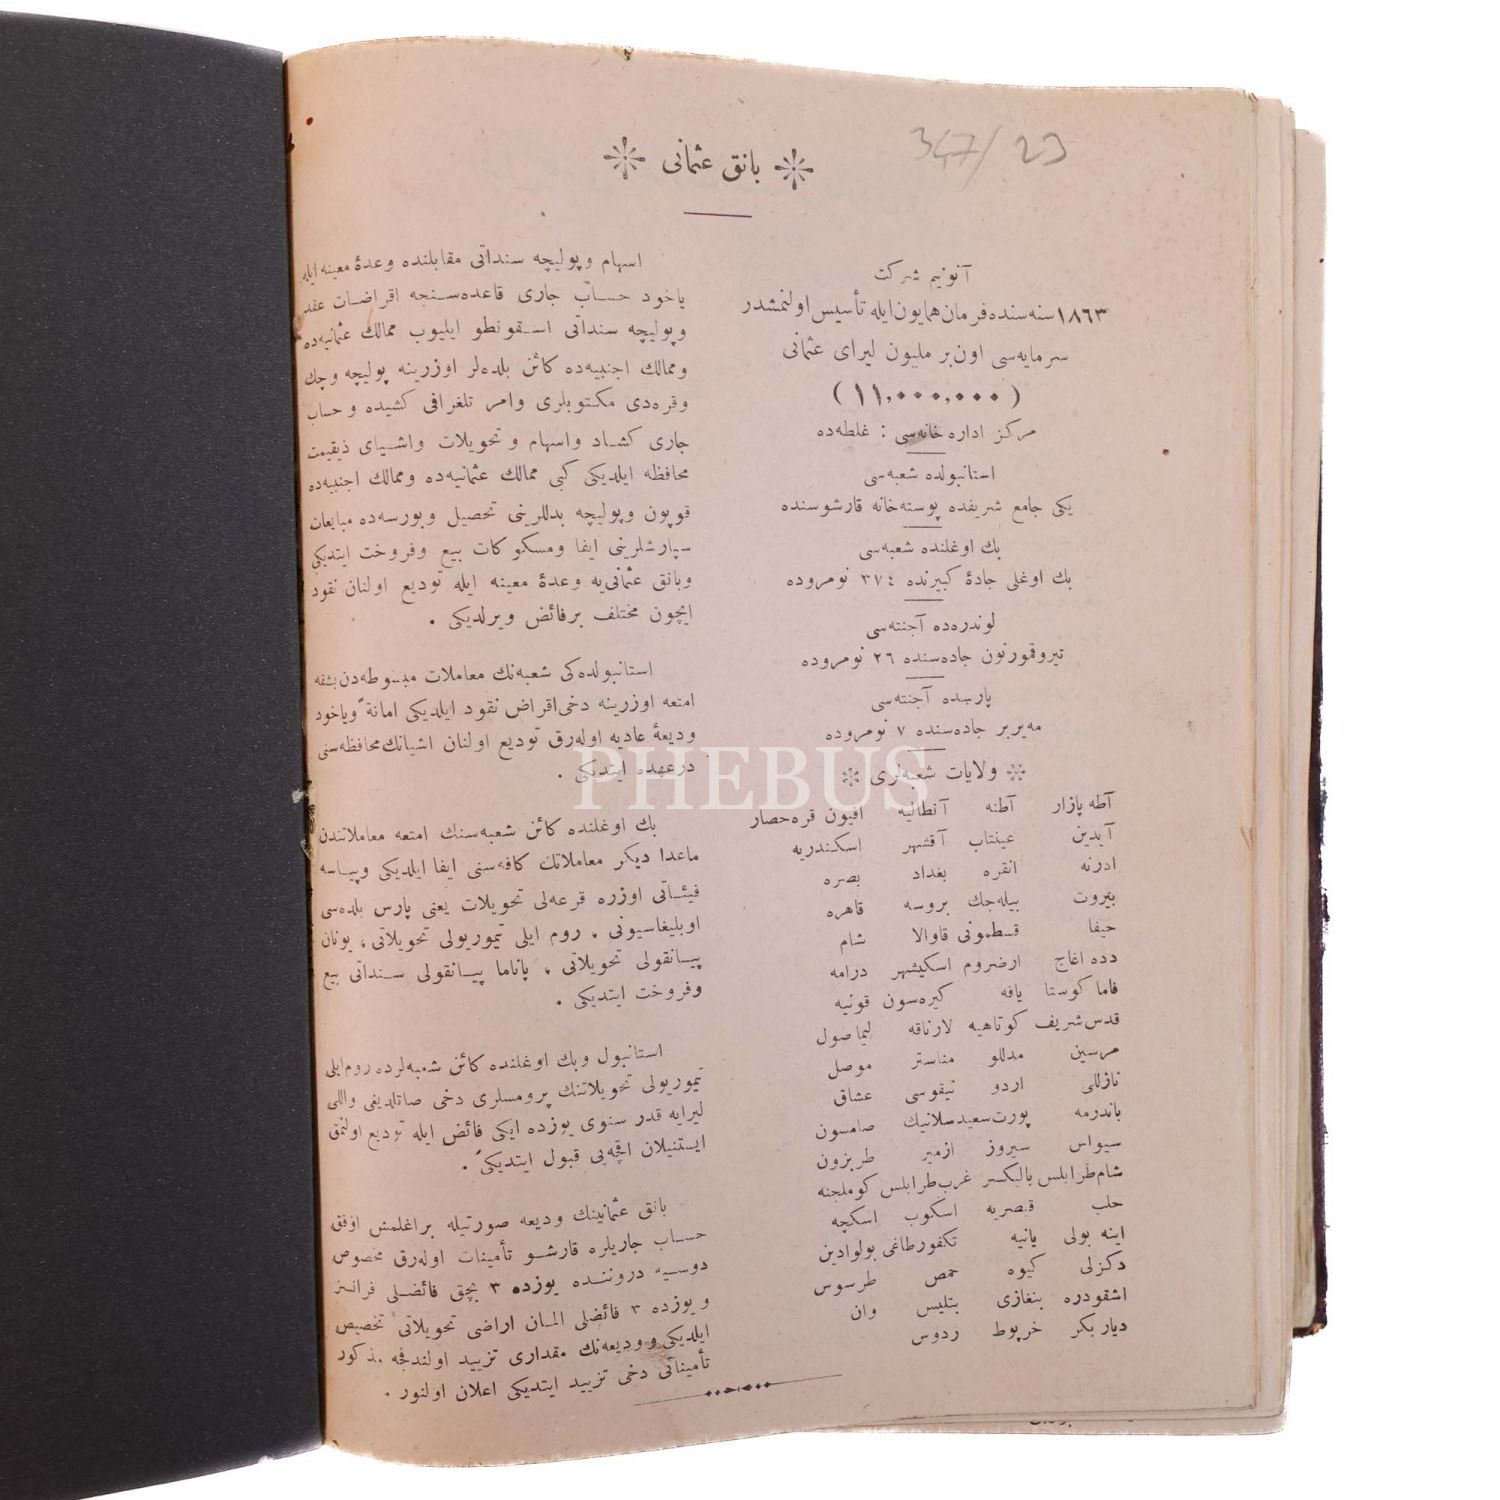 347/23
بانق عثمانی
آنونیم شرکت
۱۸٦۳ سنه‌سنده فرمان همایون ایله تأسیس اولنمشدر
سرمایه‌سی اون بر ملیون لیرای عثمانی
(۱۱,۰۰۰,۰۰۰)
مرکز اداره خانه‌سی : غلطه‌ده
استانبولده شعبه‌سی
یکی جامع شریفده پوسته‌خانه قارشوسنده
بك اوغلنده شعبه‌سی
بك اوغلی جادهٔ کبیرنده ۳۷٤ نومروده
لوندره‌ده آجنته‌سی
تیروقمورتون جاده‌سنده ۲٦ نومروده
پارسده آجنته‌سی
مه‌یربر جاده‌سنده ۷ نومروده
ولایات شعبه‌لری
آطه پازار آطنه آنطالیه افیون قره‌حصار
آیدین عینتاب آقشهر اسکندریه
ادرنه انقره بغداد بصره
بیروت بیله‌جك بروسه قاهره
حیفا قسطمونی قاوالا شام
دده اغاج ارضروم اسکیشهر درامه
فاما کوستا یافه کیره‌سون قونیه
قدس‌شریف کوتاهیه لارناقه لیماصول
مرسین مدللو مناستر موصل
نازللی اردو نیقوسی عشاق
باندرمه پورت‌سعید سلانیك صامسون
سیواس سیروز ازمیر طربزون
شام‌طرابلس بالیکسر غرب‌طرابلس کوملجنه
حلب قیصریه اسکوب اسکچه
اینه بولی یانیه تکفورطاغی بولوادین
دکزلی کیوه حمص طرسوس
اشقودره بنغازی بتلیس وان
دیاربکر خرپوط ردوس
اسهام وپولیچه سنداتی مقابلنده وعدهٔ معینه ایله
یاخود حساب جاری قاعده‌سنجه اقراضات عقد
وپولیچه سنداتی اسقونطو ایلیوب ممالك عثمانیه‌ده
وممالك اجنبیه‌ده کائن بلده‌لر اوزرینه پولیچه وچك
وقره‌دی مکتوبلری وامر تلغرافی کشیده وحساب
جاری کشاد واسهام وتحویلات واشیای ذیقیمت
محافظه ایلدیکی کبی ممالك عثمانیه‌ده وممالك اجنبیه‌ده
قوپون وپولیچه بدللرینی تحصیل وبورسه‌ده مبایعات
سپارشلرینی ایفا ومسکوکات بیع وفروخت ایتدیکی
وبانق عثمانی‌یه وعدهٔ معینه ایله تودیع اولنان نقود
ایچون مختلف برفائض ویرلدیکی .
استانبولده‌کی شعبه‌نك معاملات مبسوطه‌دن بشقه
امتعه اوزرینه دخی اقراض نقود ایلدیکی امانةً ویاخود
ودیعهٔ عادیه اوله‌رق تودیع اولنان اشیانك محافظه‌سنی
درعهده ایتدیکی .
بك اوغلنده کائن شعبه‌سنك امتعه معاملاتندن
ماعدا دیکر معاملاتك کافه‌سنی ایفا ایلدیکی وپیاسه
فیئاتی اوزره قرعه‌لی تحویلات یعنی پارس بلده‌سی
اوبلیغاسیونی ، روم ایلی تیموریولی تحویلاتی ، یونان
پیانقولی تحویلاتی ، پاناما پیانقولی سنداتی بیع
وفروخت ایتدیکی .
استانبول وبك اوغلنده کائن شعبه‌لرده روم‌ایلی
تیموریولی تحویلاتنك پرومسلری دخی صاتلدیغی واللی
لیرایه قدر سنوی یوزده ایکی فائض ایله تودیع اولنمق
ایستنیلان اقچه‌یی قبول ایتدیکی .
بانق عثمانینك ودیعه صورتیله براغلمش اوفق
حساب جاریلره قارشو تأمینات اوله‌رق مخصوص
دوسیه دروننده یوزده ۳ بچق فائضلی فرانسز
ویوزده ۳ فائضلی المان اراضی تحویلاتی تخصیص
ایلدیکی وودیعه‌نك مقداری تزیید اولندقجه مذکور
تأمیناتی دخی تزیید ایتدیکی اعلان اولنور .
PHEBUS